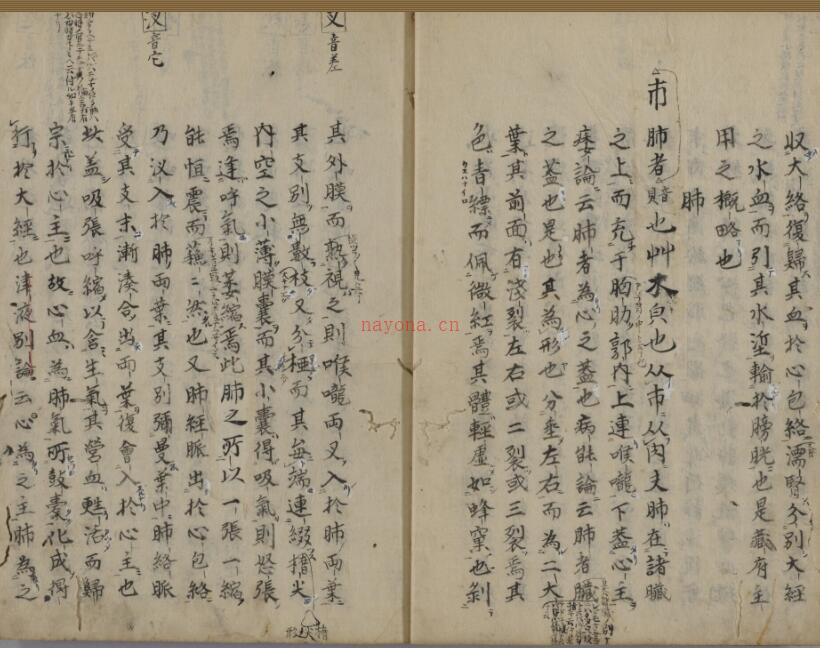 收大絡復歸其血於心包絡濡腎分別大經
之水血而引其水塗輸於膀胱也是藏府主
用之概略也
肺
市肺者賠也艸木㒵也从市从肉夫肺在諸臟
之上而充于胸肋郭內上連喉嚨下蓋心主
痿論云肺者為心之蓋也病能論云肺者臟
之蓋也是也其為形也分垂左右而為二大
葉其前面有淺裂左右或二裂或三裂焉其
色青縹而佩微紅焉其體輕虛如蜂窠也剝
其外膜而熟視之則喉嚨兩叉入於肺兩葉
叉音差
其支別無數枝又分極而其每端連綴
內空之小薄膜囊而其小囊得吸氣則怒張
焉逢呼氣則萎縮焉此肺之所以一張一縮
能恒震而然也又肺經脈出於心包絡
乃汊入於肺兩葉其支別彌曼葉中肺絡脈
汊音它
受其支末漸湊合出兩葉復會入於心主也
此蓋吸張呼縮以含生氣其營血甦活而歸
宗於心主也故心血為肺氣所鼓橐化成得
行於大經也津液別論云心為之主肺為之
nayona.cn